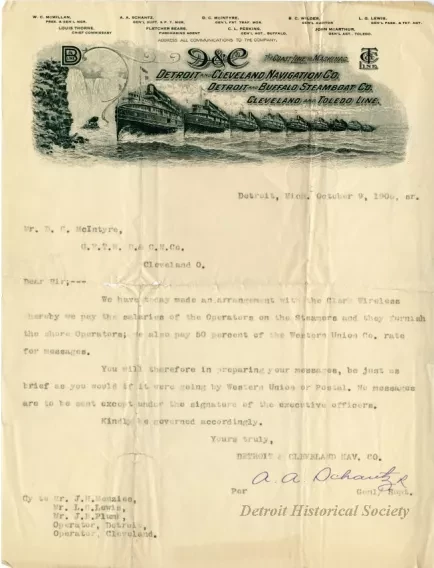 W. C. McMILLAN, A. A. SCHANTZ, D. C. McINTYRE, R. C. WILDER, L. G. LEWIS,
PRES. & GEN'L MGR. GEN'L SUPT. & P. T. MGR. GEN'L FGT. TRAF. MGR. GEN'L AUDITOR GEN'L PASS. & FGT. AGT.
LOUIS THORNE, FLETCHER SEARS, C. L. PERKINS, JOHN McARTHUR,
CHIEF COMMISSARY PURCHASING AGENT GEN'L AGT., BUFFALO. GEN'L AGT., TOLEDO.
ADDRESS ALL COMMUNICATIONS TO THE COMPANY.
D&C THE COAST LINE TO MACKINAC.
DETROIT AND CLEVELAND NAVIGATION CO.
DETROIT AND BUFFALO STEAMBOAT CO.
CLEVELAND AND TOLEDO LINE.
Detroit, Mich. October 9,
Mr. D. C. McIntyre,
Cleveland O.
Dear Sir;---
We have today made an arrangement with the Clark Wireless
whereby we pay the salaries of the Operators on the Steamers and they furnish
the shore Operators; we also pay 50 percent of the Western Union Co. rate
for messages.
You will therefore in preparing your messages, be just as
brief as you would if it were going by Western Union or Postal. No messages
are to be sent except under the signature of the executive officers.
Kindly be governed accordingly.
Yours truly,
DETROIT & CLEVELAND NAV. CO.
A. A. Schantz
Per Genl. Supt.
Cy to Mr. J.H.Menzies,
Mr. L.G.Lewis,
Mr. J.H.Plumb,
Operator, Detroit,
Operator, Cleveland.
Detroit Historical Society